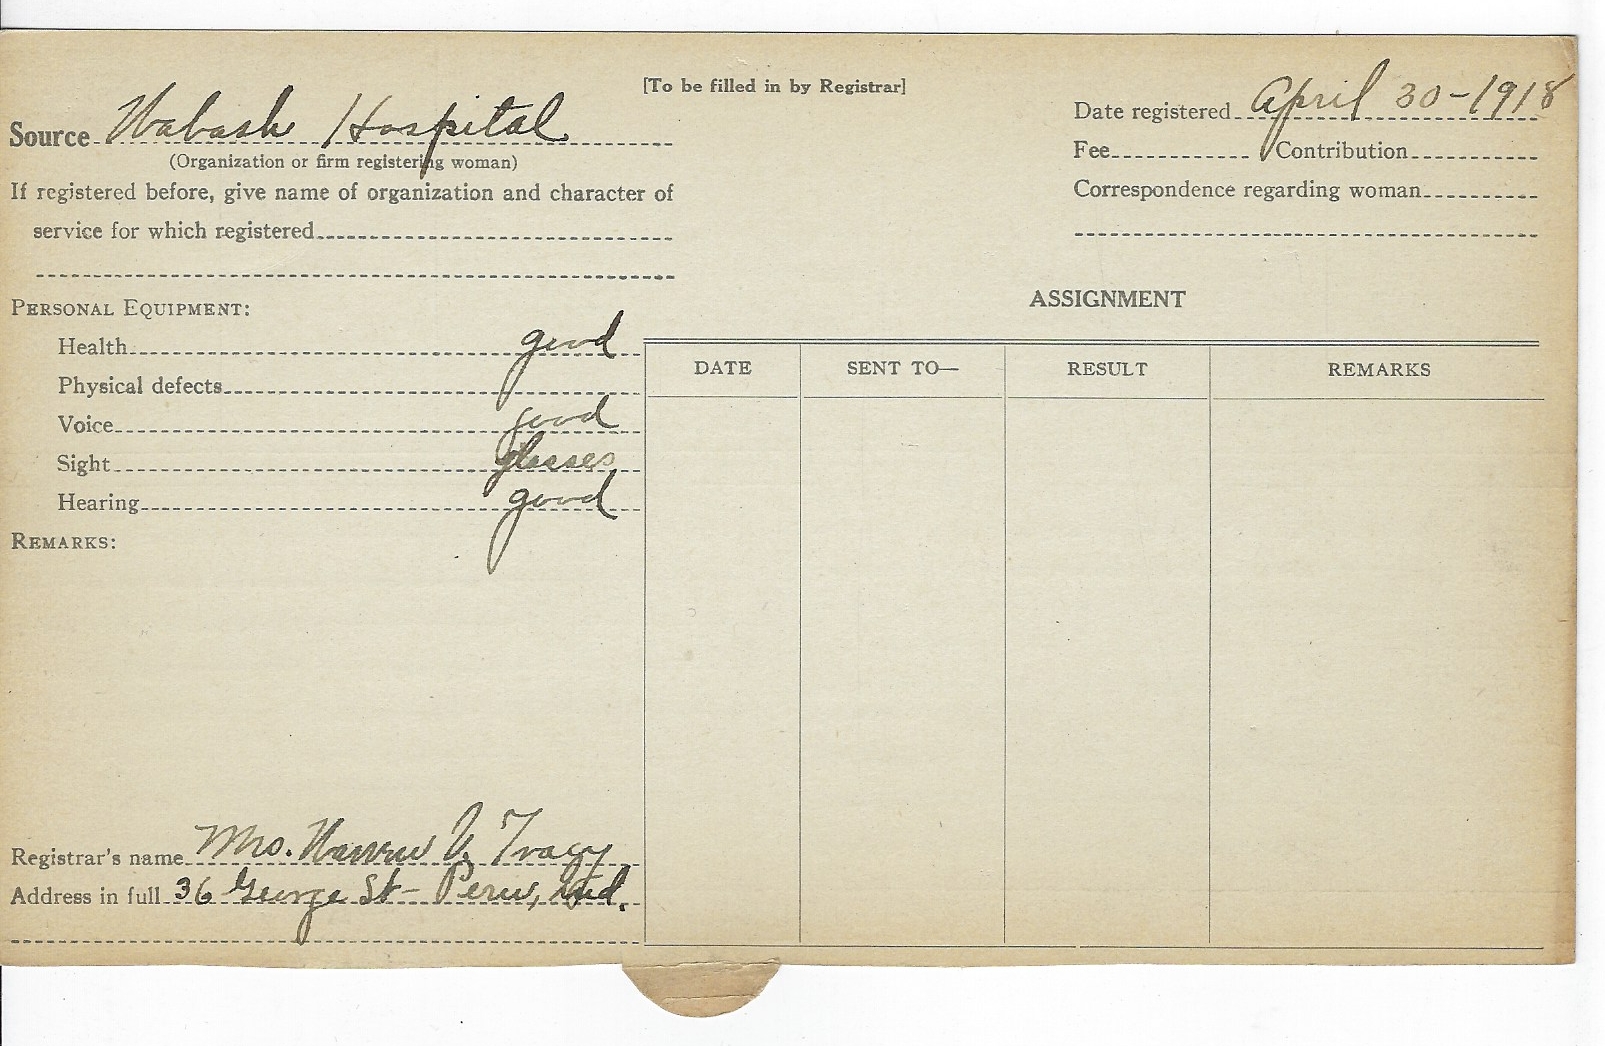 [To be filled in by Registrar]
Source Wabash Hospital
(Organization or firm registering woman)
If registered before, give name of organization and character of
service for which registered
Date registered April 30-1918
Fee Contribution
Correspondence regarding woman
PERSONAL EQUIPMENT:
Health good
Physical defects
Voice good
Sight glasses
Hearing good
REMARKS:
Registrar's name Mrs. Tracy
Address in full 36 George St- Peru, Ind.
ASSIGNMENT
DATE SENT TO— RESULT REMARKS